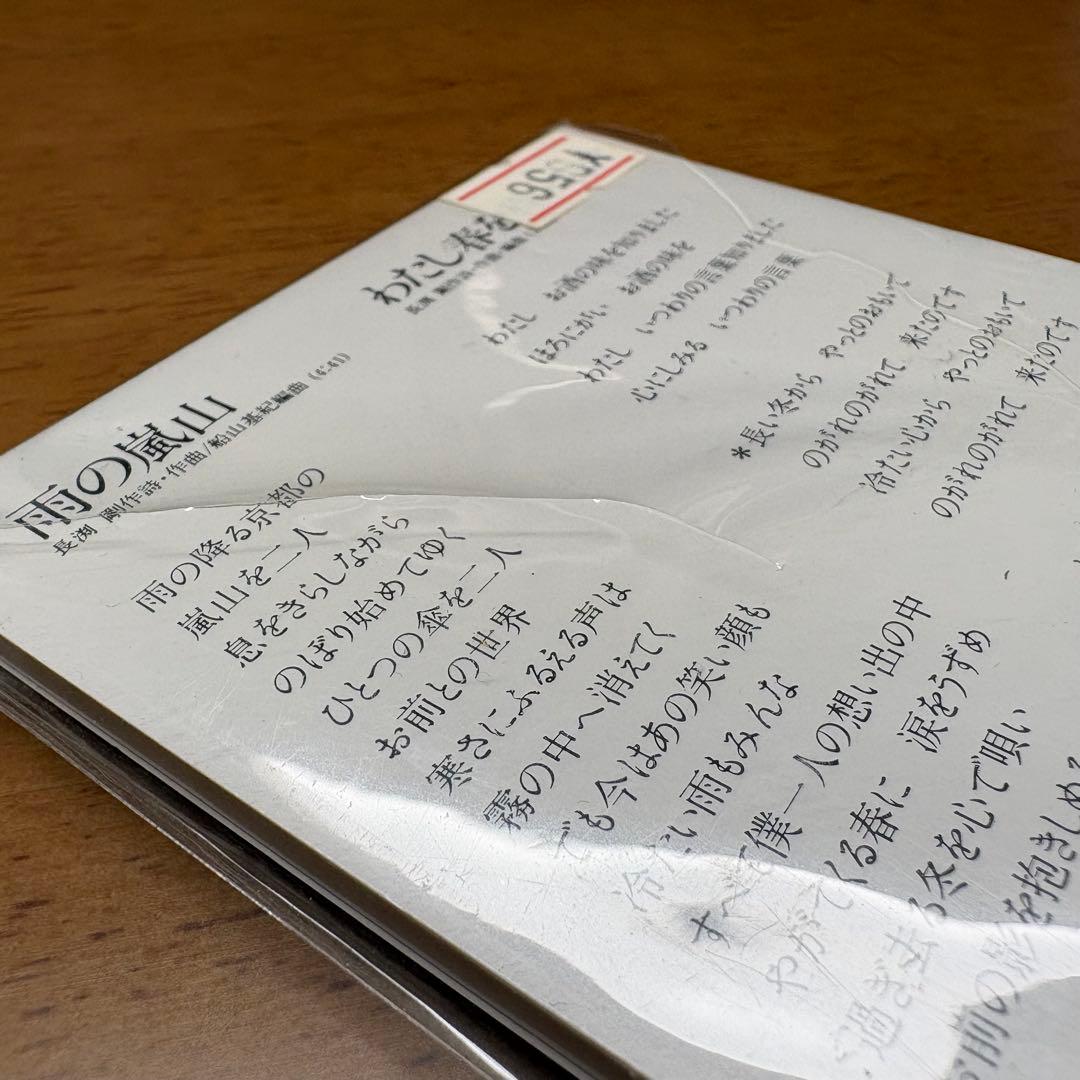 雨の嵐山
長渕 剛作詩・作曲/船山基紀編曲
雨の降る京都の
嵐山を二人
息をきらしながら
のぼり始めてゆく
ひとつの傘を二人
お前との世界
寒さにふるえる声は
霧の中へ消えてく
でも今はあの笑い顔も
冷たい雨もみんな
すべて僕一人の想い出の中
やがてくる春に 涙をうずめ
過ぎ去る冬を心で唄い
お前の影を抱きしめる
わたし春を
わたし お酒の味を知りました
ほろにがい お酒の味を
わたし いつわりの言葉知りました
心にしみる いつわりの言葉
*長い冬から やっとのおもいで
のがれのがれて 来たのです
冷たい心から やっとのおもいで
のがれのがれて 来たのです